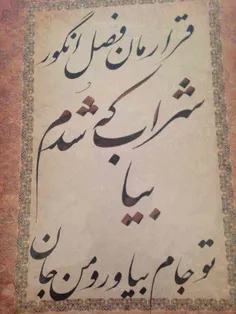 قرارمان فصل انگور
شراب که شدم
بیا
تو جام بیاور و من جان